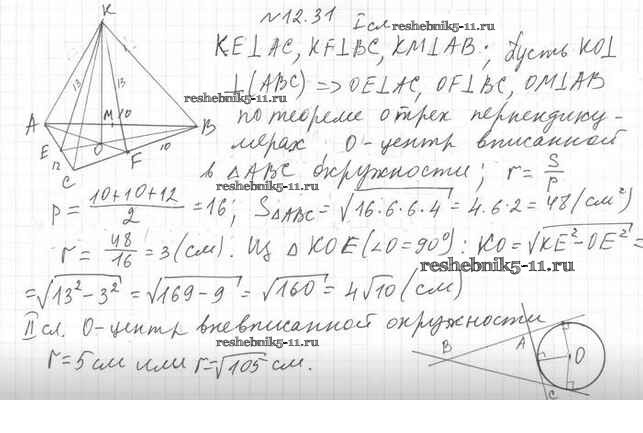 N 12.31 I сл.
reshebnik5-11.ru
KE⊥AC, KF⊥BC, KM⊥AB; Пусть KO⊥
⊥(ABC) => OE⊥AC, OF⊥BC, OM⊥AB
reshebnik5-11.ru
по теореме о трех перпендику-
лярах. O-центр вписанной
в △ABC окружности; r = S/p
reshebnik5-11.ru
p = (10+10+12)/2 = 16; S△ABC = √(16·6·6·4) = 4·6·2 = 48 (см²)
r = 48/16 = 3 (см). Из △KOE (∠O = 90°): KO = √(KE² - OE²) =
reshebnik5-11.ru
= √(13² - 3²) = √(169 - 9) = √160 = 4√10 (см)
II сл. O-центр вневписанной окружности
reshebnik5-11.ru
r = 5 см или r = √105 см.
K
13
13
A
M
10
B
E
O
F
10
12
C
B
A
O
C